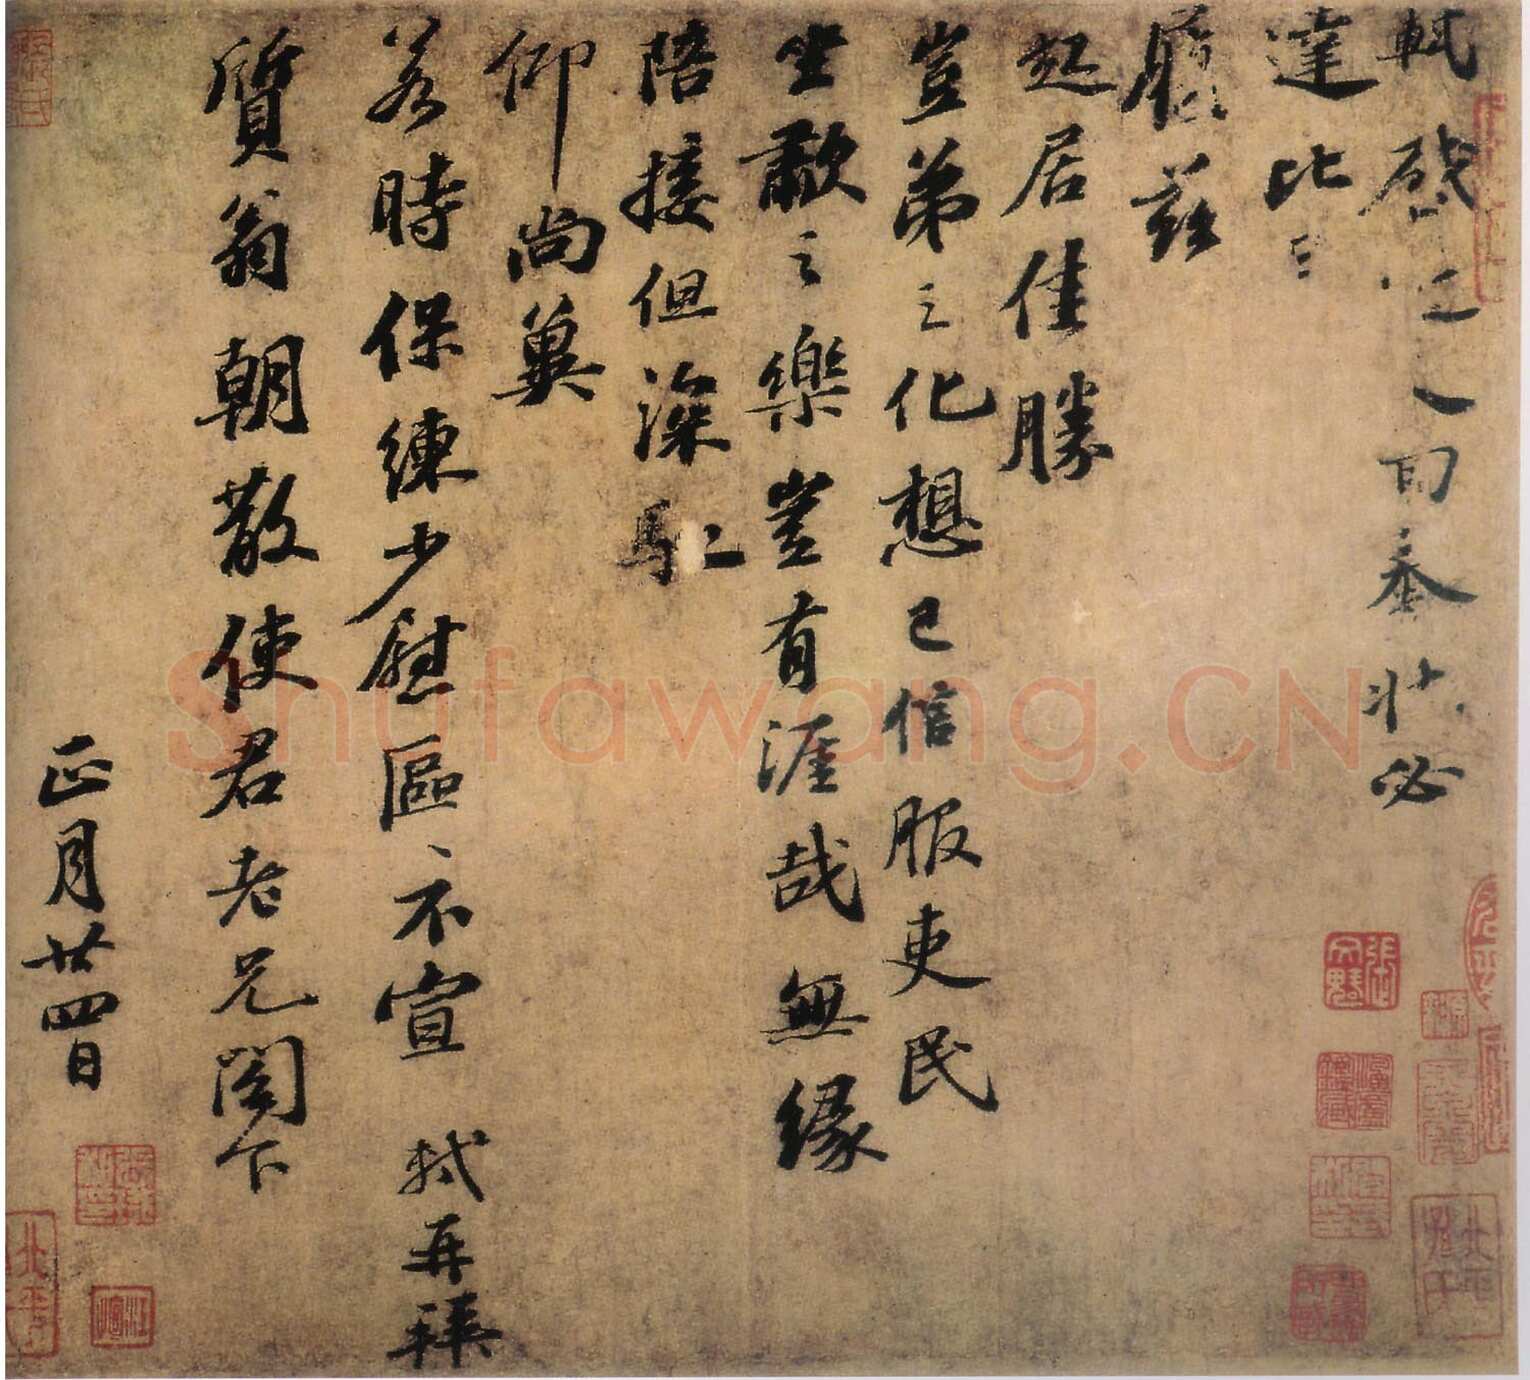 軾啓近人回奉狀必
達比日
履茲
起居佳勝
豈弟之化想已信服吏民
坐歗之樂豈有涯哉無緣
陪接但深馳
仰尚冀
若時保練少慰區、不宣 軾再拜
質翁朝散使君老兄閣下
正月廿四日
Shufawang.CN